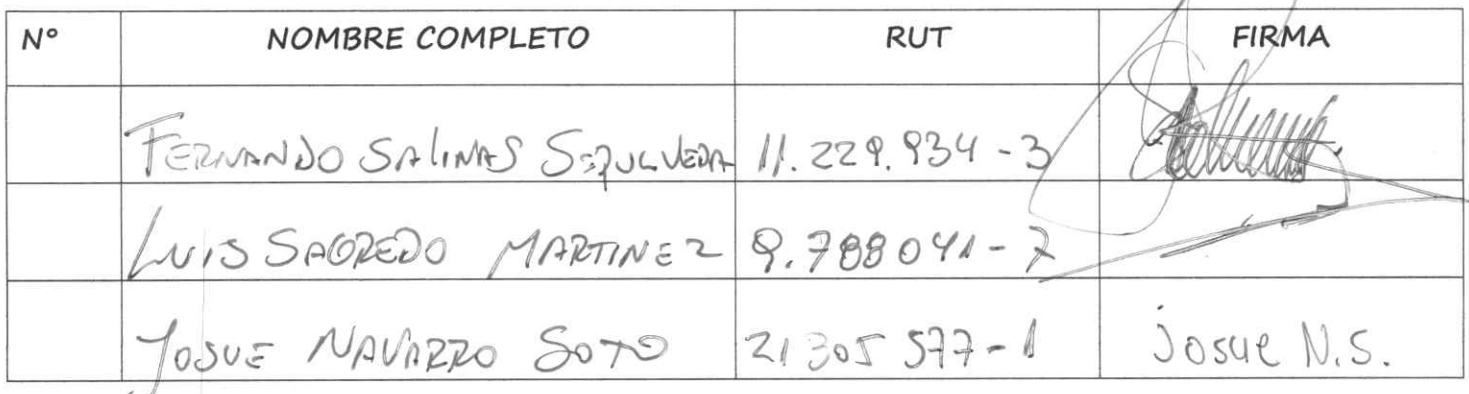 N° NOMBRE COMPLETO RUT FIRMA
FERNANDO SALINAS SEPULVEDA 11.229.934-3
LUIS SAGREDO MARTINEZ 9.788041-7
JOSUE NAVARRO SOTO 21305577-1 Josue N.S.